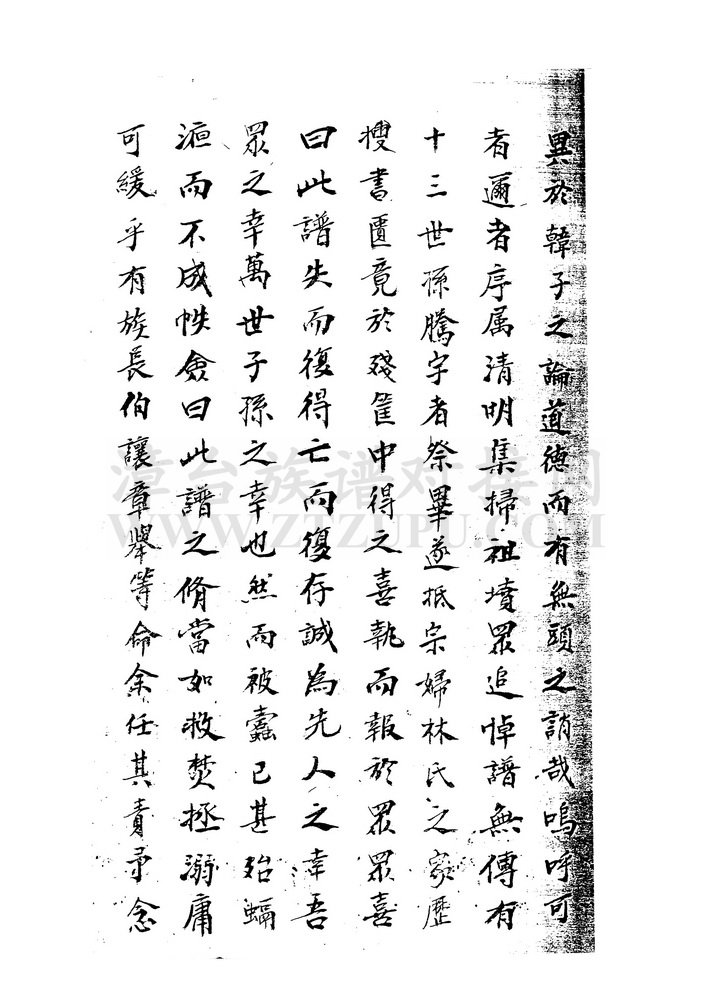 異於韓子之論道德而有無頭之誚哉嗚呼可
者邇者序属清明集掃祖墳眾追悼譜無傳有
十三世孫騰字者祭畢遂抵宗婦林氏之家歷
搜書匱竟於殘筐中得之喜執而報於眾眾喜
曰此譜失而復得亡而復存誠為先人之幸吾
眾之幸萬世子孫之幸也然而被蠹已甚殆蝠
漶而不成帙僉曰此譜之脩當如救焚拯溺庸
可緩乎有族長伯讓章舉等命余任其責予念
漳台族谱对接网
WWW.ZTZUPU.COM